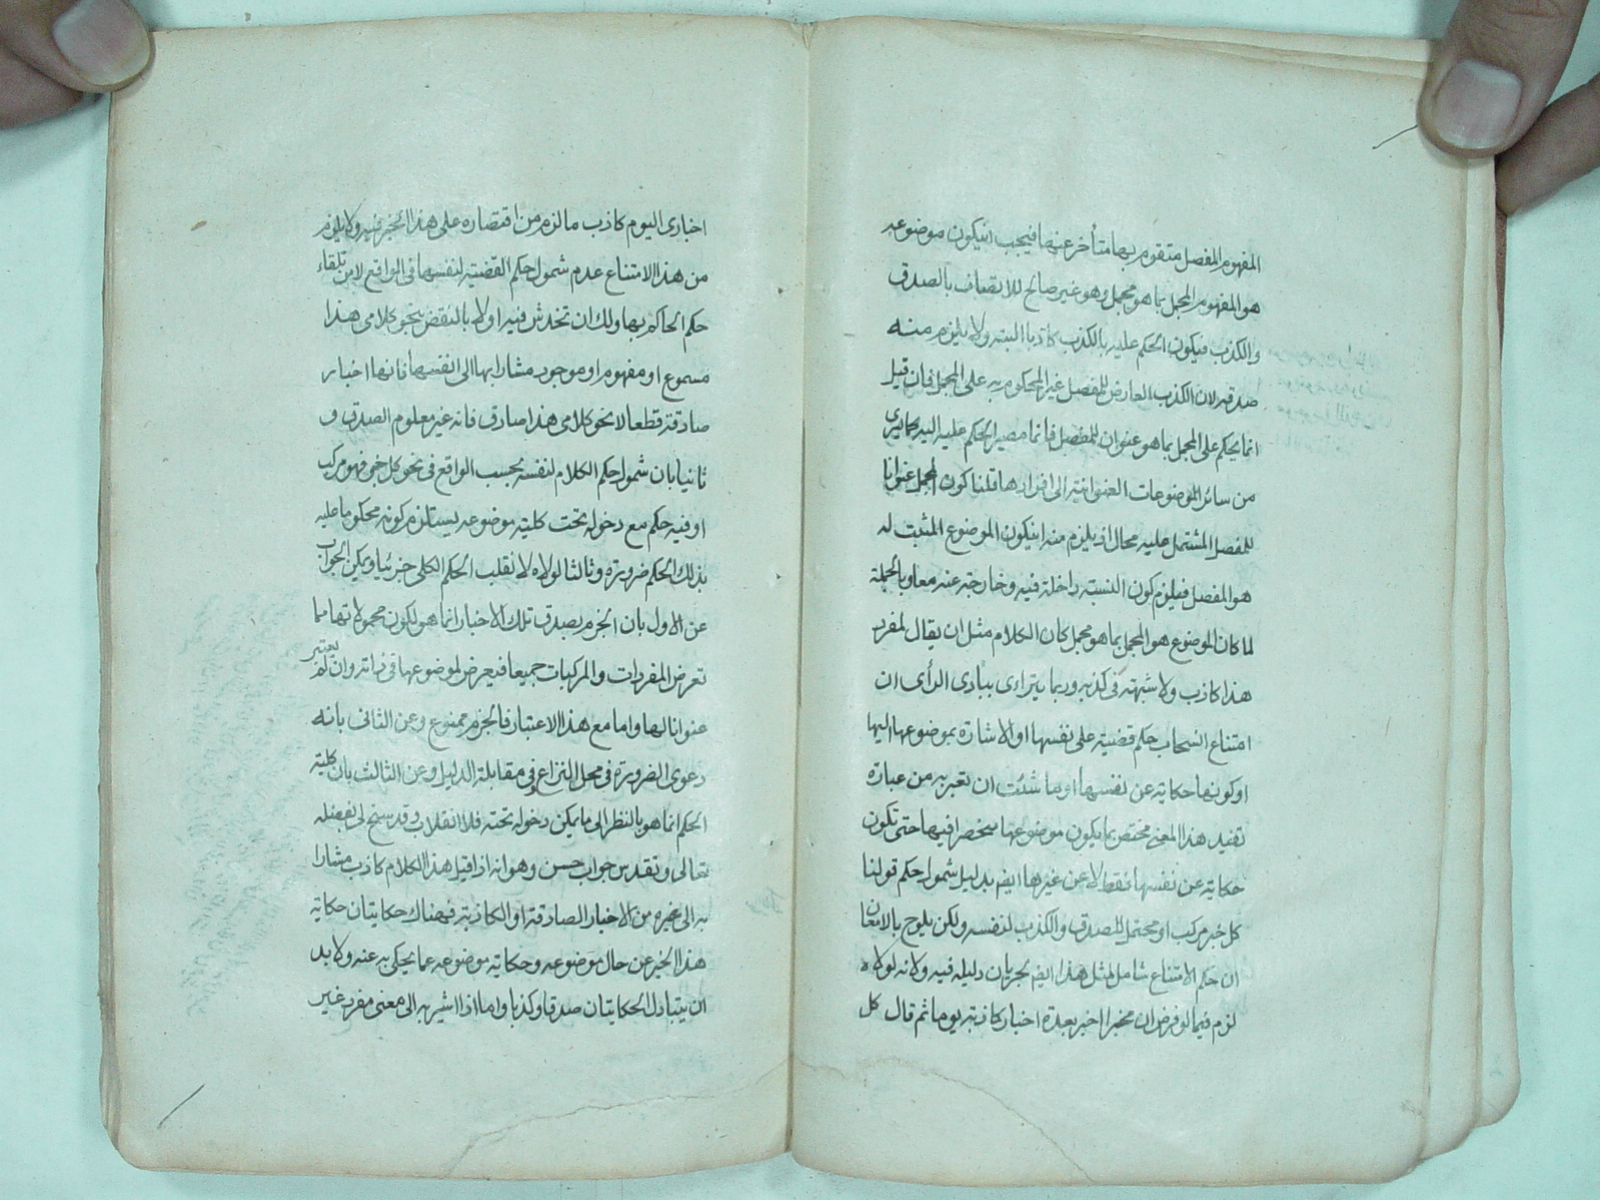 المفهوم المفصل متقوم بها متأخر عنها فيجب ان يكون موضوعه
هو المفهوم المجمل بما هو مجمل وهو غير صالح للاتصاف بالصدق
والكذب فيكون الحكم عليه بالكذب كاذبا البته ولا يلزم منه
صدقه لان الكذب العارض للمفصل غير المحكوم به على المجمل فان قيل
انما يحكم على المجمل بما هو عنوان للمفصل فانما مصير الحكم عليه اليه كما يرى
من سائر الموضوعات العنوانية الى افرادها قلنا كون المجمل عنوانا
للمفصل المشتمل عليه محال اذ يلزم منه ان يكون الموضوع المثبت له
هو المفصل فيلزم كون النسبة داخلة فيه وخارجة عنه معا وبالجملة
لما كان الموضوع هو المجمل بما هو مجمل كان الكلام مثل ان يقال لمفرد
هذا كاذب ولا شبهة في كذبه وربما يتراءى ببادى الرأى ان
امتناع انسحاب حكم قضية على نفسها او الاشارة بموضوعها اليها
او كونها حكاية عن نفسها او ما شئت ان تعبر به من عبارة
تفيد هذا المعنى مختص بما يكون موضوعها منحصرا فيها حتى تكون
حكاية عن نفسها فقط لا عن غيرها ايضا بدليل شمول حكم قولنا
كل خبر مركب او محتمل للصدق والكذب لنفسه ولكن يلوح بالامعان
ان حكم الامتناع شامل لمثل هذا ايضا لجريان دليله فيه ولانه لولاه
لزم فيما لو فرض ان مخبرا اخبر بعدة اخبار كاذبة يوما ثم قال كل
اخبارى اليوم كاذب ما لزم من اقتصاره على هذا الخبر فيه ولا يلزم
من هذا الامتناع عدم شمول حكم القضية لنفسها فى الواقع لا من تلقاء
حكم الحاكم بها ولك ان تخدش فيه اولا بالنقض بنحو كلامى هذا
مسموع او مفهوم او موجود مشارا بها الى انفسها فانها اخبار
صادقة قطعا لا نحو كلامى هذا صادق فانه غير معلوم الصدق و
ثانيا بان شمول حكم الكلام لنفسه بحسب الواقع فى نحو كل خبر فهو مركب
او فيه حكم مع دخوله تحت كلية موضوعه يستلزم كونه محكوما عليه
بذلك الحكم ضرورة وثالثا لولاه لانقلب الحكم الكلى جزئيا ويمكن الجواب
عن الاول بان الجزم بصدق تلك الاخبار انما هو لكون محمولاتها مما
تعرض المفردات والمركبات جميعا فيعرض لموضوعها فى ذاته وان لم يعتبر
عنوانا لها واما مع هذا الاعتبار فالجزم ممنوع وعن الثانى بانه
دعوى الضرورة فى محل النزاع وفى مقابلة الدليل وعن الثالث بان كلية
الحكم انما هو بالنظر الى ما يمكن دخوله تحته فلا انقلاب وقد سنح لى بفضله
تعالى وتقدس جواب حسن وهو انه اذا قيل هذا الكلام كاذب مشارا
به الى غيره من الاخبار الصادقة او الكاذبة فهناك حكايتان حكاية
هذا الخبر عن حال موضوعه وحكاية موضوعه عما يحكى به عنه ولا بد
ان يتبادل الحكايتان صدقا وكذبا واما اذا اشير به الى معنى مفرد غير